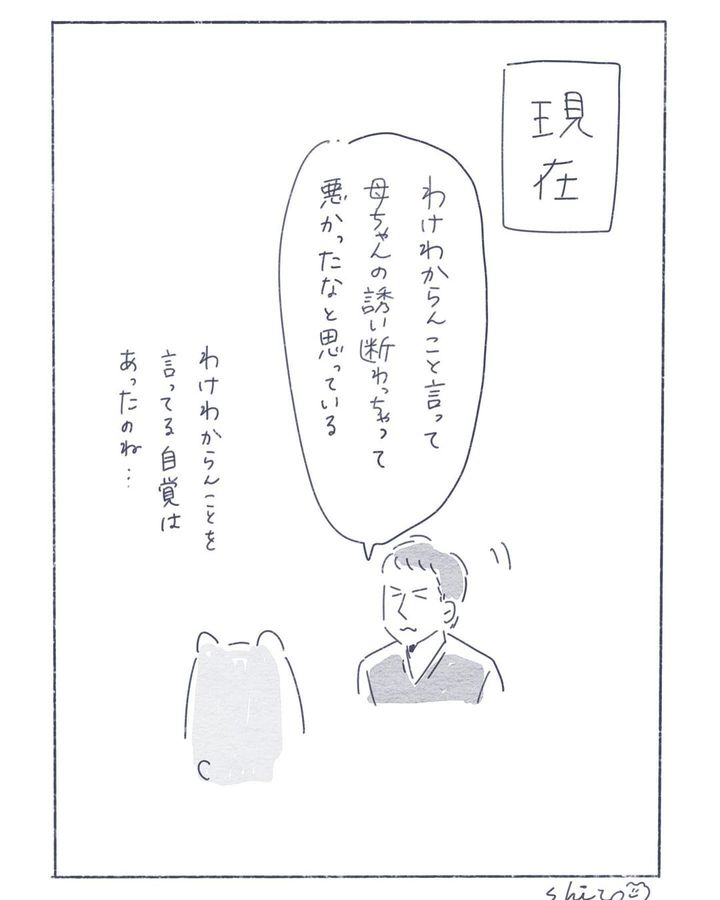 現在
わけわからんこと言って
母ちゃんの誘い断わっちゃって
悪かったなと思っている
わけわからんことを
言ってる自覚は
あったのね…
shiro